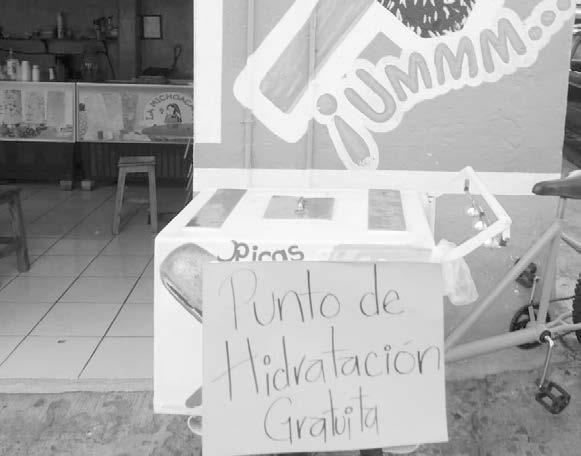 ¡UMMM...
LA MICHOACA
Ricas
Punto de
Hidratación
Gratuita